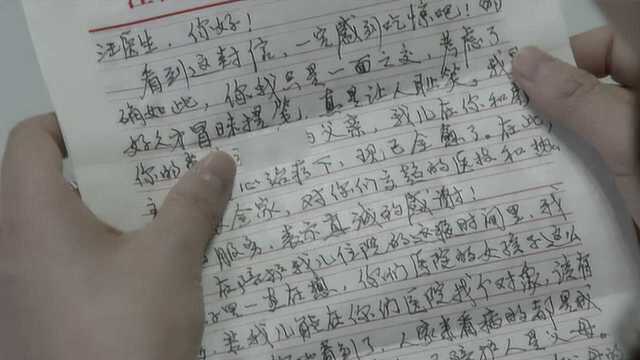 汪医生，你好！
看到这封信，一定感到吃惊吧！的
确如此，你我只是一面之交，考虑了
好久才冒昧提笔，真是让人耻笑。我
与父亲，我儿在你和
你的 心治疗下，现已全愈了。在此
全家，对你们高超的医技和
服务，表示真诚的感谢！
在陪我儿住院的 时间里，我
里一直在想，你们医院的女孩子这么
我儿能在你们医院找个对象，该有
看到了，人家来看病的都是
人是父母。